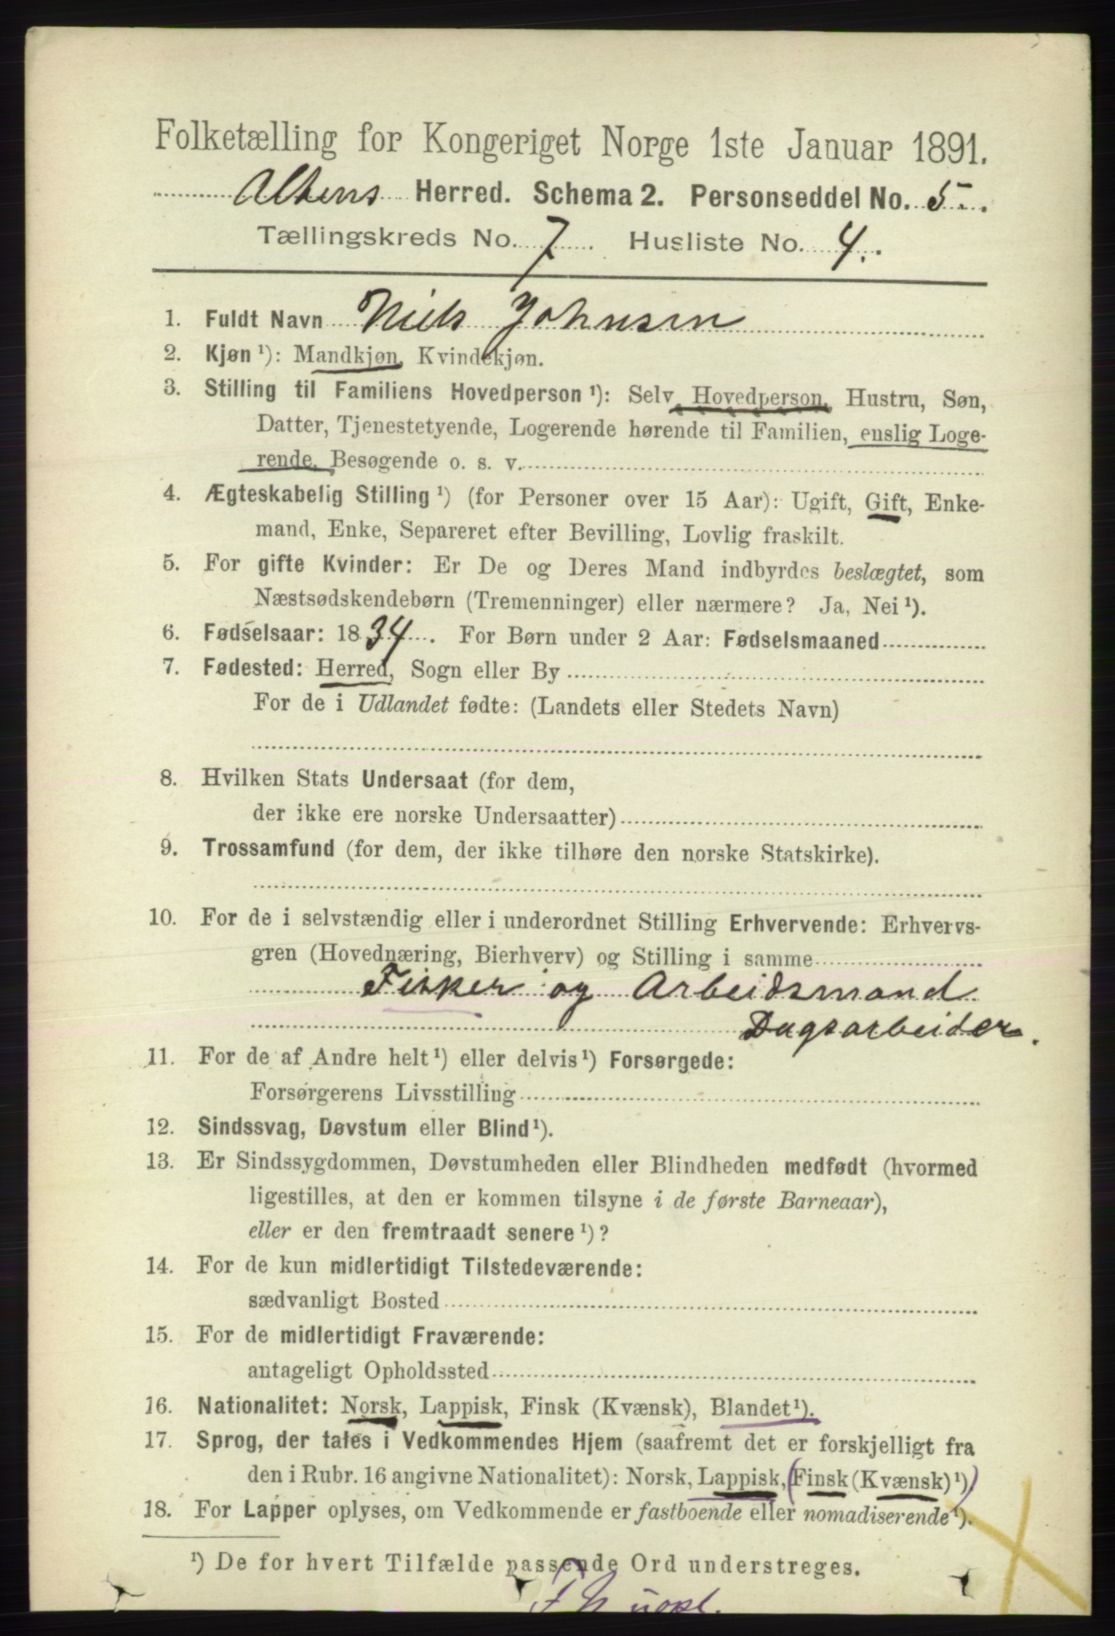 Folketælling for Kongeriget Norge 1ste Januar 1891.
Altens Herred. Schema 2. Personseddel No. 5.
Tællingskreds No. 7. Husliste No. 4.
1. Fuldt Navn Niels Johnsen
2. Kjøn ¹): Mandkjøn, Kvindekjøn.
3. Stilling til Familiens Hovedperson ¹): Selv Hovedperson, Hustru, Søn,
Datter, Tjenestetyende, Logerende hørende til Familien, enslig Loge-
rende, Besøgende o. s. v.
4. Ægteskabelig Stilling ¹) (for Personer over 15 Aar): Ugift, Gift, Enke-
mand, Enke, Separeret efter Bevilling, Lovlig fraskilt.
5. For gifte Kvinder: Er De og Deres Mand indbyrdes beslægtet, som
Næstsødskendebørn (Tremenninger) eller nærmere? Ja, Nei ¹).
6. Fødselsaar: 1834. For Børn under 2 Aar: Fødselsmaaned
7. Fødested: Herred, Sogn eller By
For de i Udlandet fødte: (Landets eller Stedets Navn)
8. Hvilken Stats Undersaat (for dem,
der ikke ere norske Undersaatter)
9. Trossamfund (for dem, der ikke tilhøre den norske Statskirke).
10. For de i selvstændig eller i underordnet Stilling Erhvervende: Erhvervs-
gren (Hovednæring, Bierhverv) og Stilling i samme
Fisker og Arbeidsmand
Dagsarbeider.
11. For de af Andre helt ¹) eller delvis ¹) Forsørgede:
Forsørgerens Livsstilling
12. Sindssvag, Døvstum eller Blind ¹).
13. Er Sindssygdommen, Døvstumheden eller Blindheden medfødt (hvormed
ligestilles, at den er kommen tilsyne i de første Barneaar),
eller er den fremtraadt senere ¹)?
14. For de kun midlertidigt Tilstedeværende:
sædvanligt Bosted
15. For de midlertidigt Fraværende:
antageligt Opholdssted
16. Nationalitet: Norsk, Lappisk, Finsk (Kvænsk), Blandet ¹).
17. Sprog, der tales i Vedkommendes Hjem (saafremt det er forskjelligt fra
den i Rubr. 16 angivne Nationalitet): Norsk, Lappisk, (Finsk (Kvænsk) ¹).)
18. For Lapper oplyses, om Vedkommende er fastboende eller nomadiserende ¹).
¹) De for hvert Tilfælde passende Ord understreges.